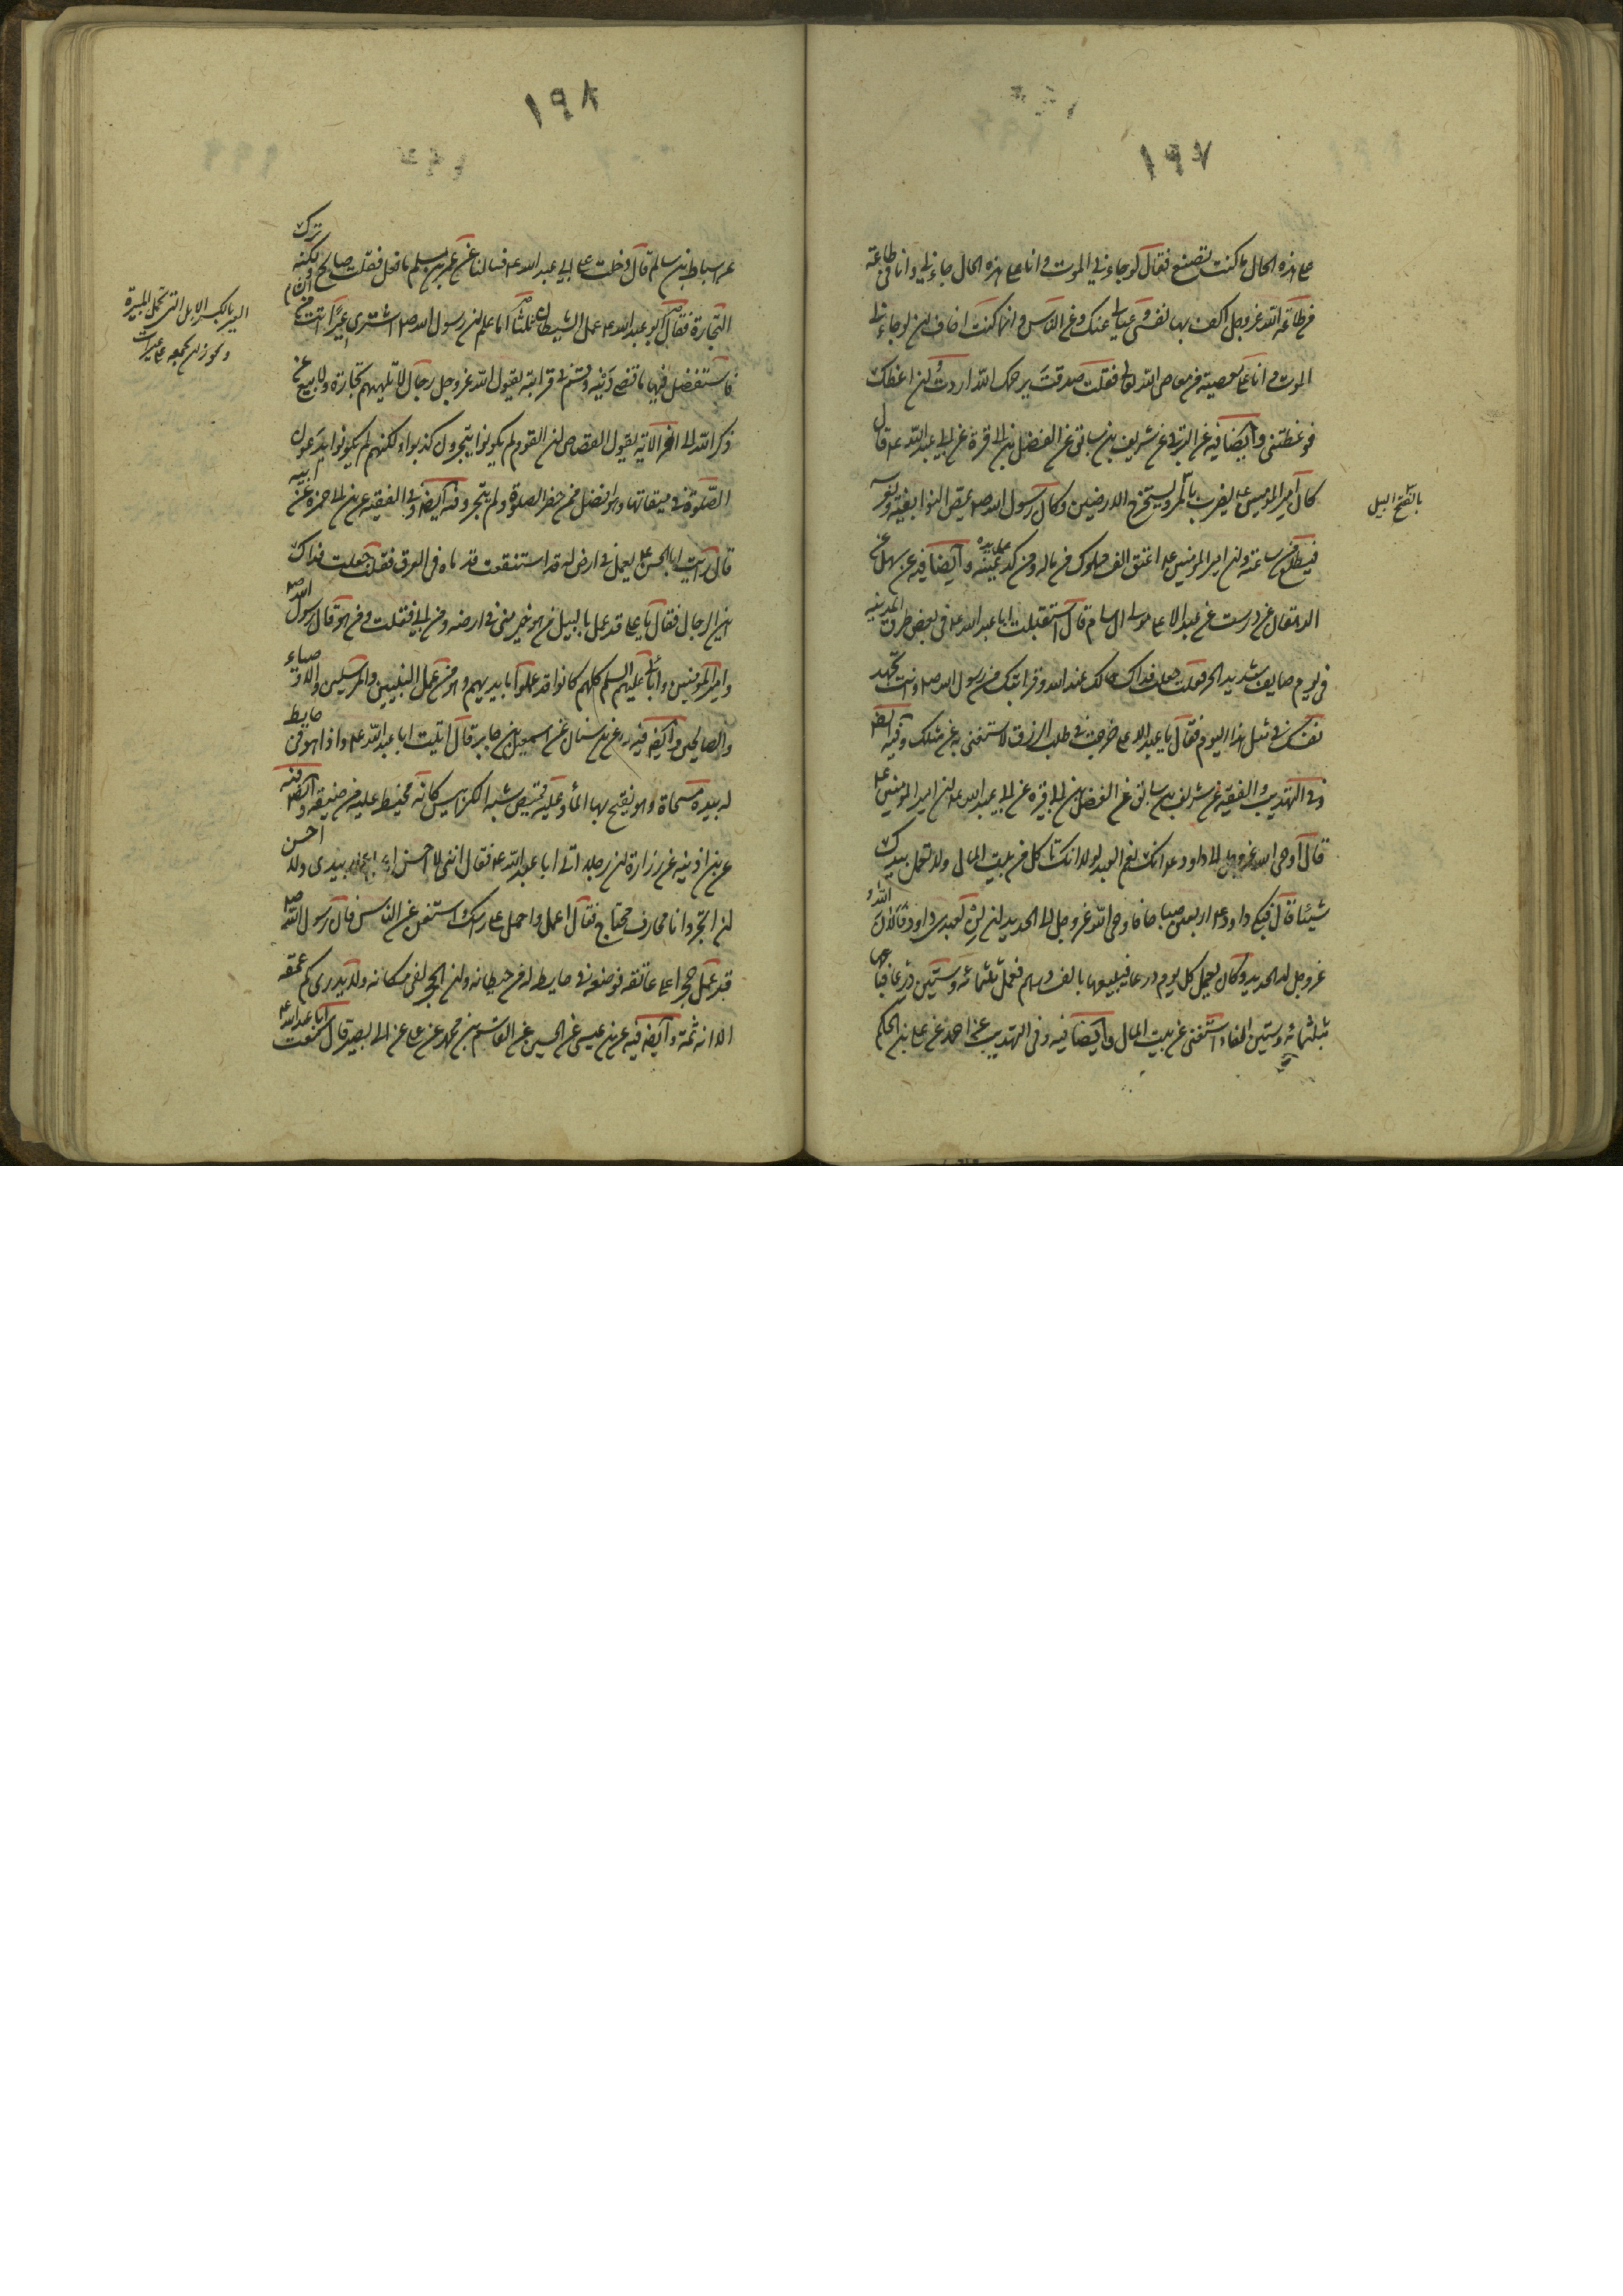 ١٩٧
على هذه الحال ما كنت تصنع فقال لو جاءني الموت وانا على هذه الحال جاءني وانا في طاعة
من طاعة الله عز وجل اكف بها نفسي وعيالي عنك وعن الناس وانما كنت اخاف ان لو جاءني
الموت وانا على معصية من معاصي الله تعالى فقلت صدقت يرحمك الله اردت ان اعظك
فوعظتني وأيضا فيه عن البرقي عن شريف بن سابق عن الفضل بن ابي قرة عن ابي عبد الله ع قال
كان أمير المؤمنين ع يضرب بالمر ويستخرج الارضين وكان رسول الله ص يمص النوا بفيه ويغرسه
فيطلع من ساعته وان امير المؤمنين ع اعتق الف مملوك من ماله ومن كد يمينه وأيضا فيه عن سهل عن
الدهقان عن درست عن عبد الاعلى مولى ال سام قال استقبلت ابا عبد الله ع في بعض طرق المدينه
في يوم صايف شديد الحر فقلت جعلت فداك حالك عند الله وقرابتك من رسول الله ص وانت تجهد
نفسك في مثل هذا اليوم فقال يا عبد الاعلى خرجت في طلب الرزق لاستغني به عن مثلك وفيه ايضا
وفي التهذيب والفقيه عن شريف بن سابق عن الفضل بن ابي قره عن ابي عبد الله ع ان امير المؤمنين ع
قال اوحى الله عز وجل الى داود ع انك نعم العبد لولا انك تاكل من بيت المال ولا تعمل بيدك
شيئا قال فبكى داود ع اربعين صباحا فاوحى الله عز وجل الى الحديد ان لن لعبدي داود فألان الله
عز وجل له الحديد وكان يعمل كل يوم درعا فيبيعها بالف درهم فعمل ثلثمائة وستين درعا فباعها
بثلثمائة وستين الفا واستغنى عن بيت المال وأيضا فيه وفي التهذيب عن احمد عن علي بن الحكم
بالفتح البيل
١٩٨
عن اسباط بن سالم قال دخلت على ابي عبد الله ع فسالنا عن عمر بن مسلم ما فعل فقلت صالح ولكنه ترك
التجارة فقال ابو عبد الله ع عمل الشيطان ثلثا اما علم ان رسول الله ص اشترى عيرا اتت من الشام
فاستفضل فيها ما قضى دينه وقسم في قرابته يقول الله عز وجل رجال لا تلهيهم تجارة ولا بيع عن
ذكر الله الى اخر الاية يقول القصاص ان القوم لم يكونوا يتجرون كذبوا ولكنهم لم يكونوا يدعون
الصلوة في ميقاتها وهو افضل ممن حضر الصلوة ولم يتجر وفيه ايضا وفي الفقيه عن بن ابي حمزه عن ابيه
قال رايت ابا الحسن ع يعمل في ارض له قد استنقعت قدماه في العرق فقلت جعلت فداك
اين الرجال فقال يا علي قد عمل بالبيل من هو خير مني في ارضه ومن ابي فقلت ومن هو قال رسول الله ص
وامير المؤمنين وآبائي عليهم السلم كلهم كانوا قد عملوا بايديهم وهو من عمل النبيين والمرسلين والاوصياء
والصالحين وأيضا فيه عن بن سنان عن اسمعيل بن جابر قال اتيت ابا عبد الله ع واذا هو في حايط
له بيده مسحاة وهو يفتح بها الماء وعليه قميص شبه الكرابيس كانه مخيط عليه من ضيقه وأيضا فيه
عن بن اذينه عن زرارة ان رجلا اتى ابا عبد الله ع فقال انني لا احسن ان اعمل بيدي ولا احسن
ان اتجر وانا محارف محتاج فقال اعمل واحمل على راسك واستغن عن الناس فان رسول الله ص
قد عمل حجرا على عاتقه فوضعه في حايط له من حيطانه وان الحجر لفي مكانه ولا يدرى كم عمقه
الا انه ثمة وأيضا فيه عن بن عيسى عن الحسين عن القاسم بن محمد عن علي عن ابي بصير قال سمعت ابا عبد الله ع
العير بالكسر الابل التي تحمل الميرة
ويجوز ان تجمعه على عيرات